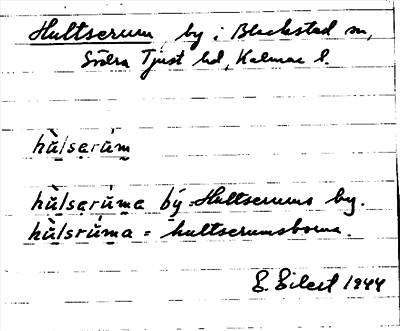 Hultserum, by i Blackstad sn,
Södra Tjust hd, Kalmar l.
hù̀lsęrúm
hù̀lsęrúma bý = Hultserums by.
hù̀lsrúma = hultserumsborna.
E. Eilert 1944